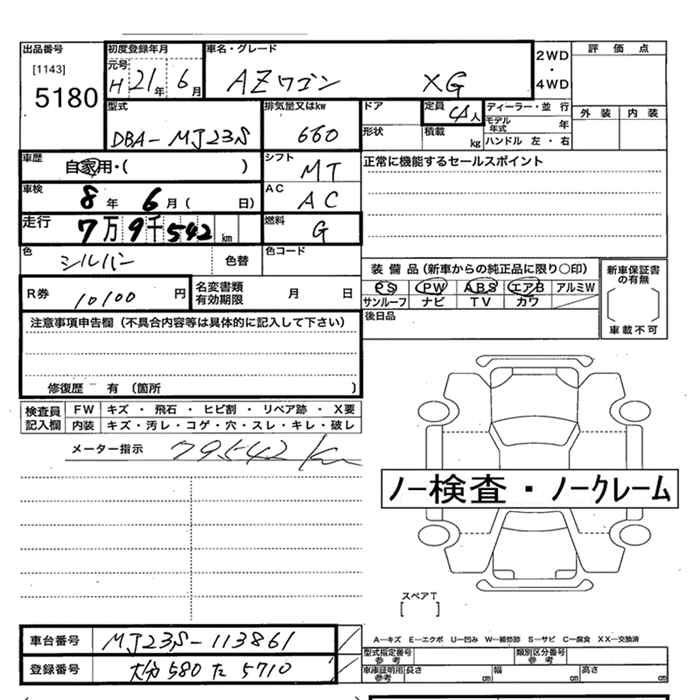 出品番号 初度登録年月 車名・グレード 2WD・4WD 評価点
[1143] 元号 H21年 6月 AZワゴン XG
5180
型式 排気量又はkw ドア 定員 4人 ディーラー・並行 外装 内装
DBA-MJ23S 660 形状 積載 kg モデル年式 年
ハンドル 左・右
車歴 自家用・( ) シフト MT 正常に機能するセールスポイント
車検 8年 6月( 日) AC AC
走行 7万9千542km 燃料 G
色 シルバー 色替 色コード
装備品(新車からの純正品に限り○印) 新車保証書の有無
R券 10100円 名変書類有効期限 月 日 PS PW ABS エアB アルミW
サンルーフ ナビ TV カワ
[ ]
車載不可
注意事項申告欄(不具合内容等は具体的に記入して下さい) 後日品
修復歴 有(箇所 )
検査員記入欄 FW キズ・飛石・ヒビ割・リペア跡・X要
内装 キズ・汚レ・コゲ・穴・スレ・キレ・破レ
メーター指示 79542 Km
ノー検査・ノークレーム
スペアT
[ ]
車台番号 MJ23S-113861 A―キズ E―エクボ U―凹み W―補修跡 S―サビ C―腐食 XX―交換済
型式指定番号 参考 類別区分番号 参考
登録番号 大分 580 た 5710 車庫証明用 参考 長さ cm 幅 cm 高さ cm